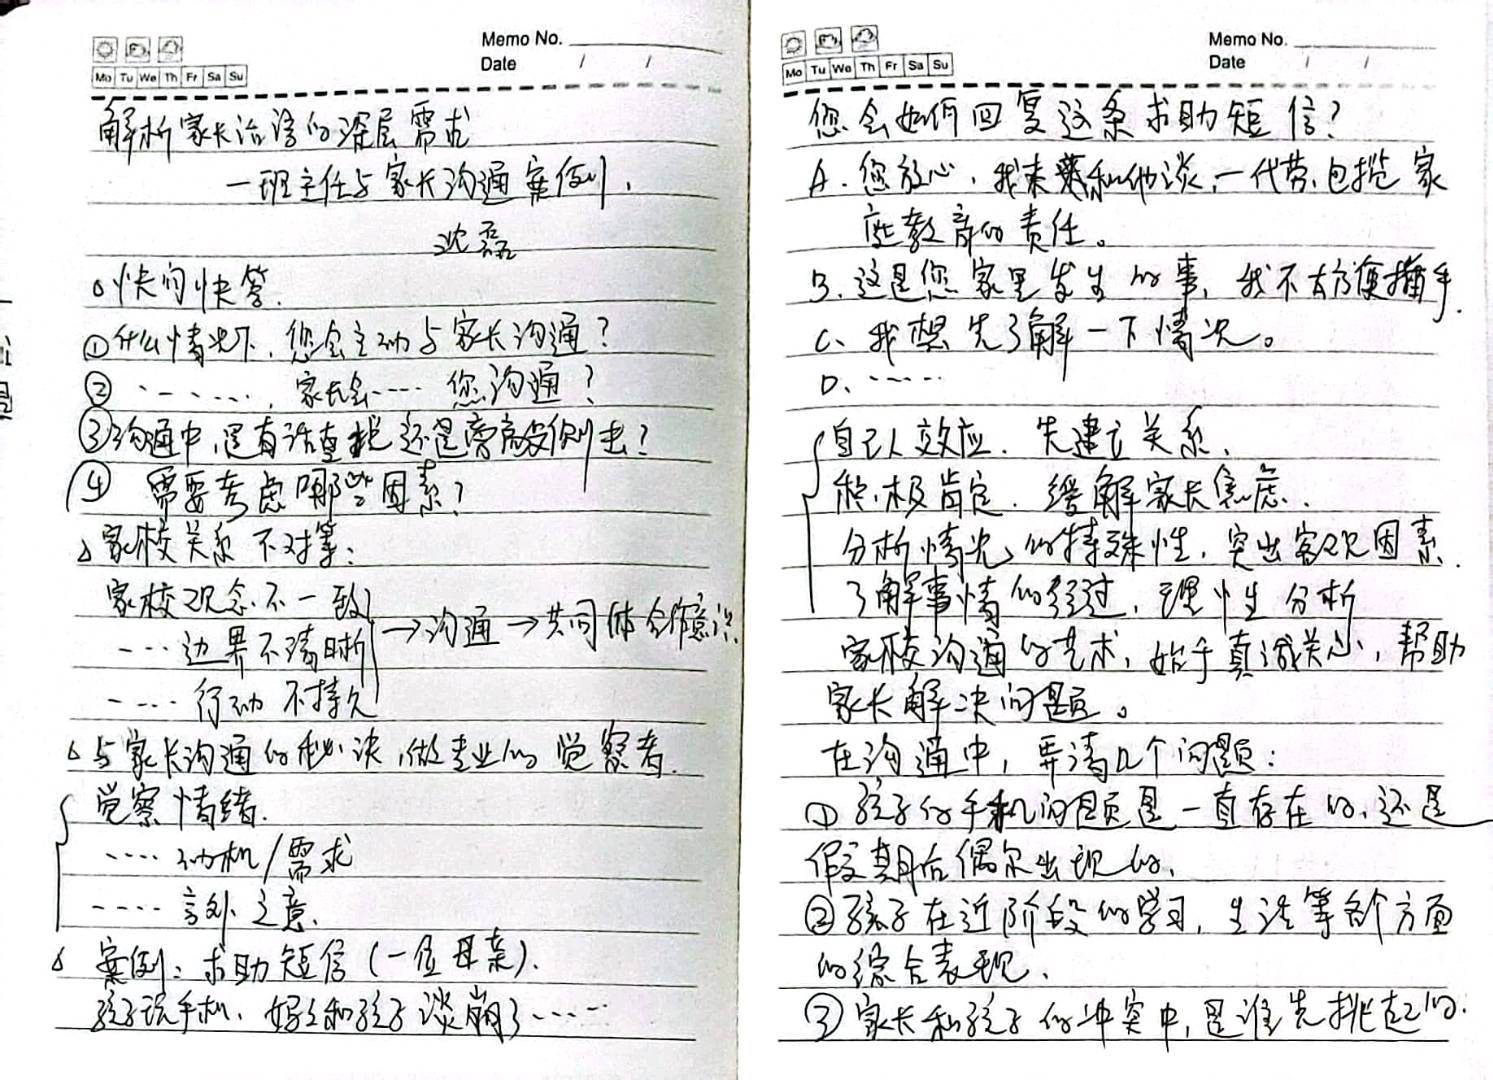 Memo No.
Date / /
Mo Tu We Th Fr Sa Su
解析家长话语的深层需求
—班主任与家长沟通案例.
沈磊
快问快答.
①什么情况下,您会主动与家长沟通?
② ‥‥‥,家长会‥‥您沟通?
③沟通中,是有话直说还是旁敲侧击?
④ 需要考虑哪些因素?
家校关系不对等.
家校观念不一致
‥‥边界不清晰 →沟通→共同体合作意识.
‥‥行动不持久
与家长沟通的秘诀,做专业的觉察者.
觉察情绪.
‥‥动机/需求
‥‥言外之意.
案例:求助短信(一位母亲).
孩子玩手机,妈妈和孩子谈崩了‥‥‥
Memo No.
Date / /
Mo Tu We Th Fr Sa Su
您会如何回复这条求助短信?
A.您放心,我来和他谈,一代劳,包揽家
庭教育的责任。
B.这是您家里发生的事,我不太方便插手.
C、我想先了解一下情况。
D、‥‥‥
自己人效应.先建立关系.
积极肯定.缓解家长焦虑.
分析情况的特殊性,突出客观因素.
了解事情的经过,理性分析
家校沟通的艺术,始于真诚关心,帮助
家长解决问题。
在沟通中,弄清几个问题:
①孩子的手机问题是一直存在的,还是
假期后偶尔出现的.
②孩子在近阶段的学习,生活等各个方面
的综合表现.
③家长和孩子的冲突中,是谁先挑起的.